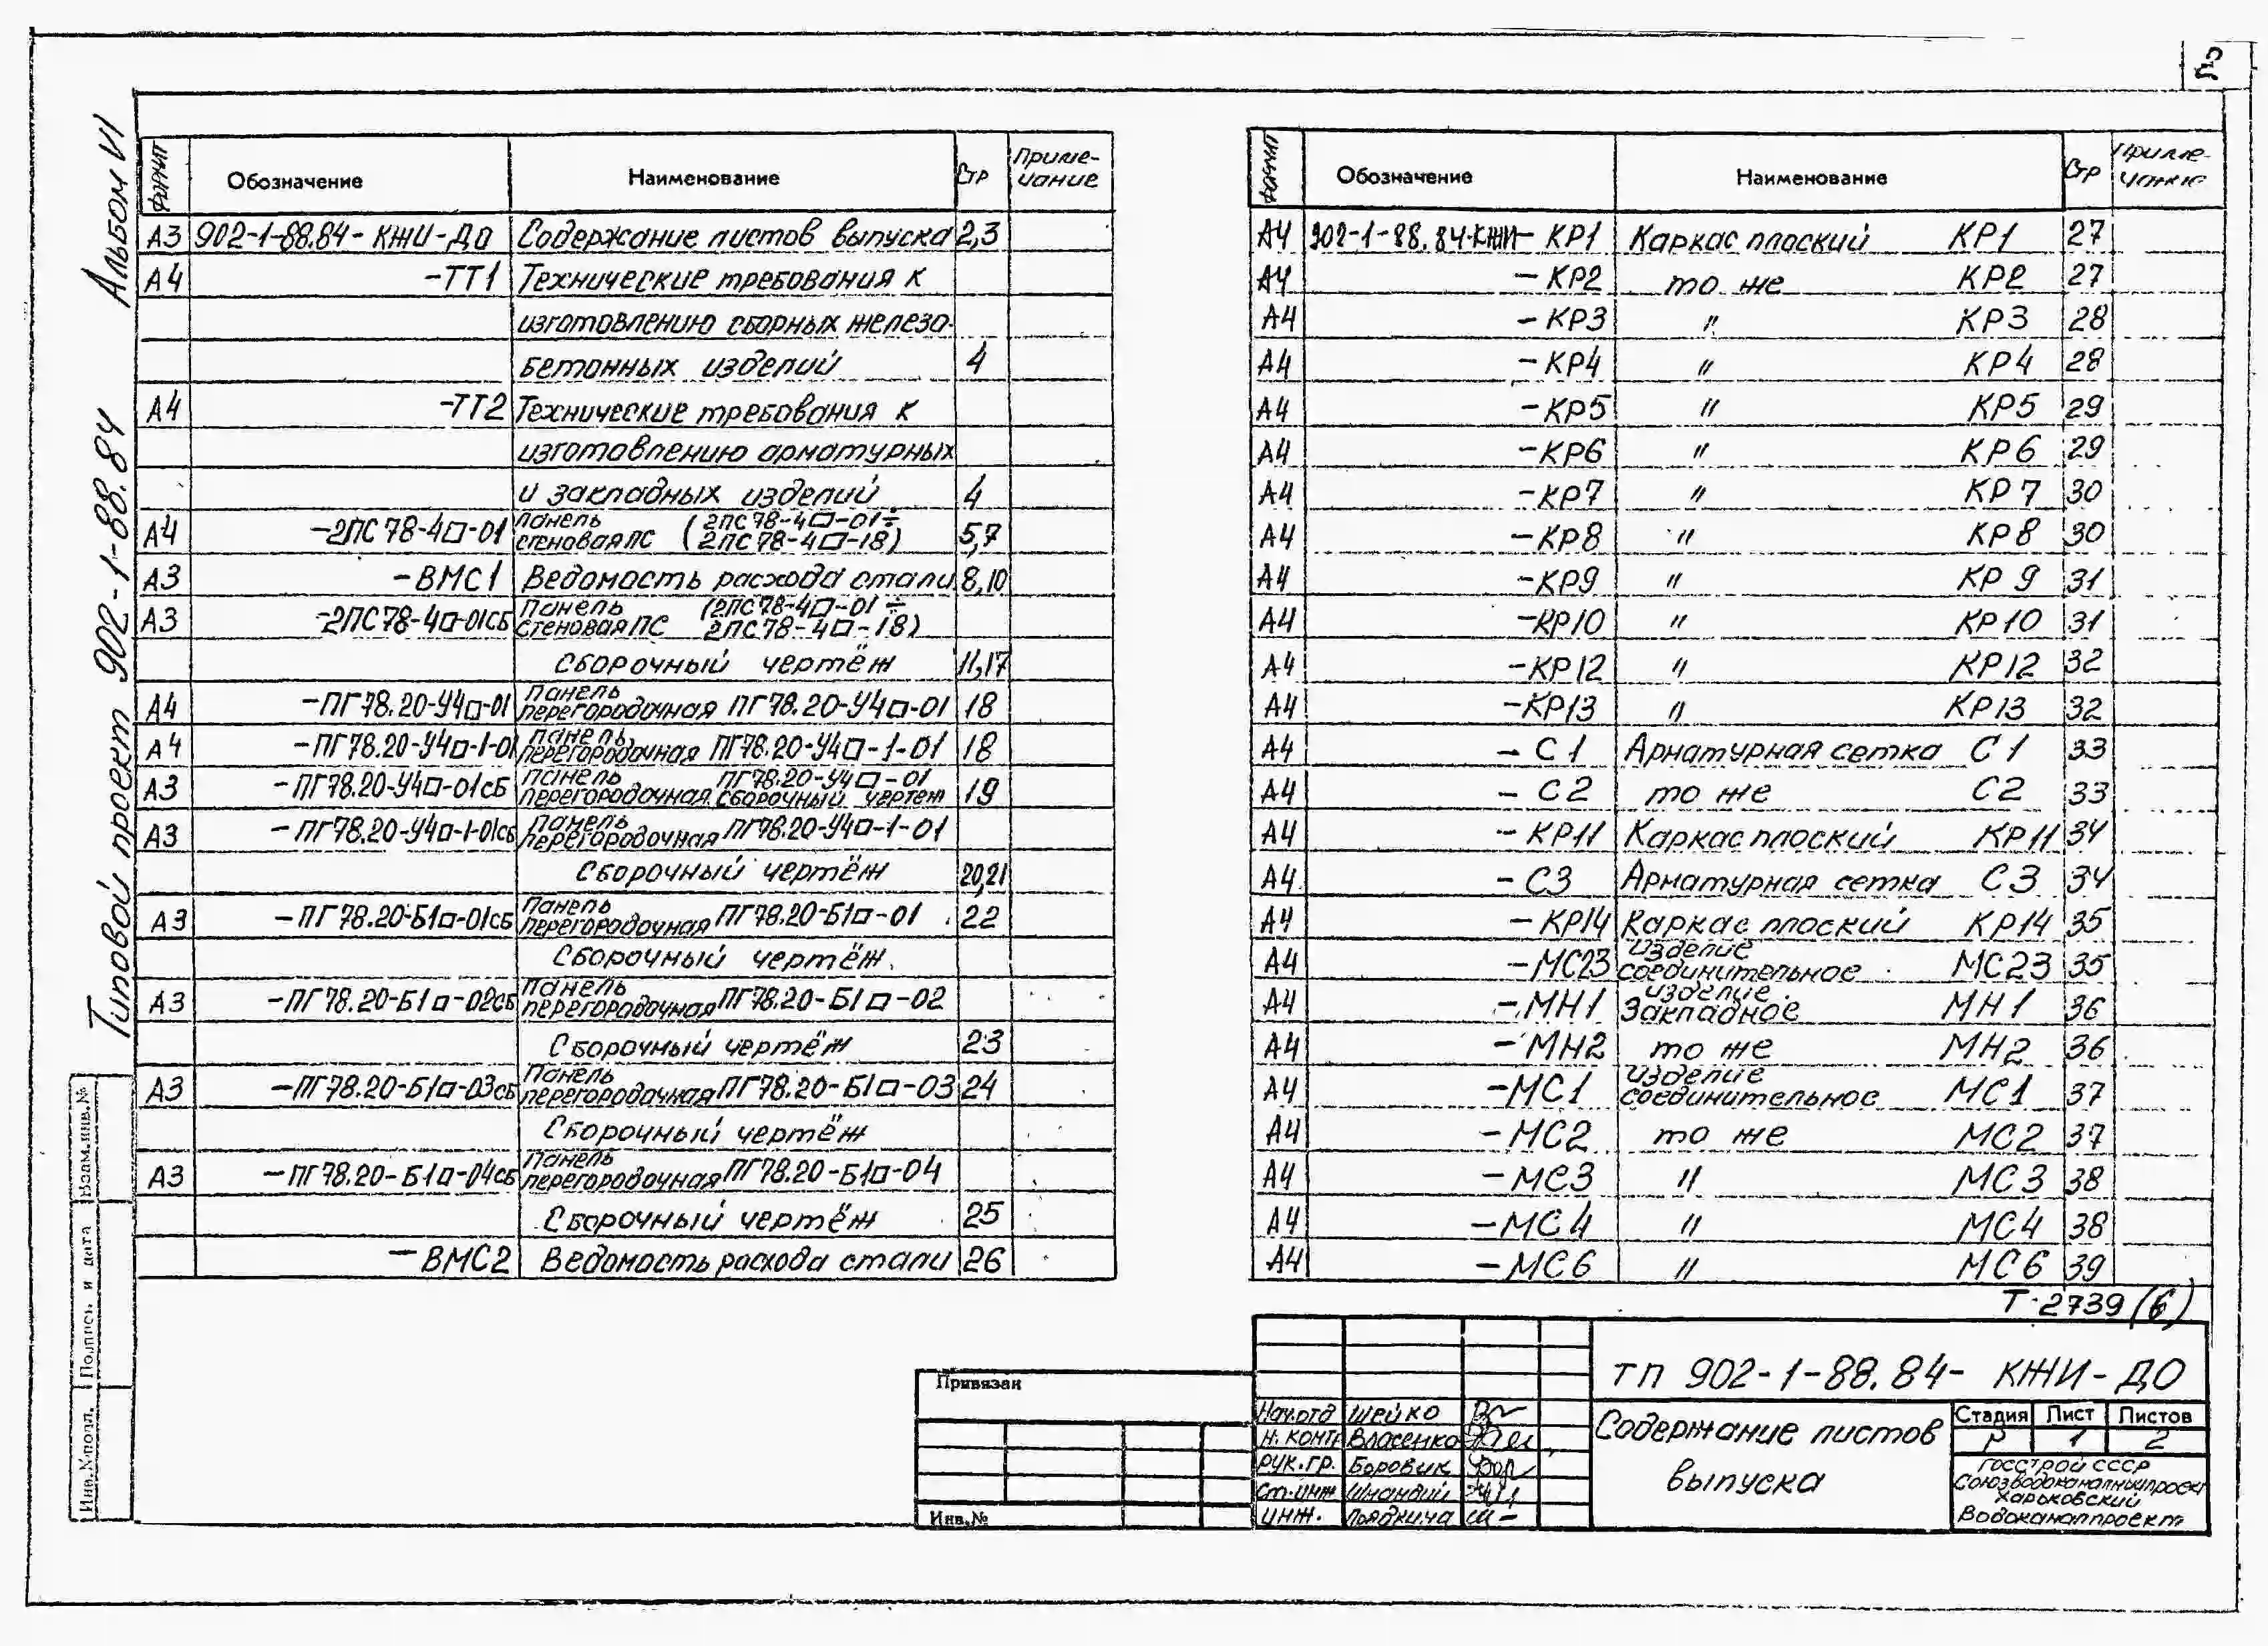 2
Альбом VI
Типовой проект 902-1-88.84
Формат Обозначение Наименование Стр Приме-
чание
А3 902-1-88.84-КЖИ-ДО Содержание листов выпуска 2,3
А4 -ТТ1 Технические требования к
изготовлению сборных железо-
бетонных изделий 4
А4 -ТТ2 Технические требования к
изготовлению арматурных
и закладных изделий 4
А4 -2ПС78-4□-01 Панель стеновая ПС (2ПС78-4□-01÷ 2ПС78-4□-18) 5,7
А3 -ВМС1 Ведомость расхода стали 8,10
А3 -2ПС78-4□-01СБ Панель стеновая ПС (2ПС78-4□-01÷ 2ПС78-4□-18)
Сборочный чертёж 11,17
А4 -ПГ78.20-У4□-01 Панель перегородочная ПГ78.20-У4□-01 18
А4 -ПГ78.20-У4□-1-01 Панель перегородочная ПГ78.20-У4□-1-01 18
А3 -ПГ78.20-У4□-01СБ Панель перегородочная ПГ78.20-У4□-01 Сборочный чертеж 19
А3 -ПГ78.20-У4□-1-01СБ Панель перегородочная ПГ78.20-У4□-1-01
Сборочный чертёж 20,21
А3 -ПГ78.20-Б1□-01СБ Панель перегородочная ПГ78.20-Б1□-01 22
Сборочный чертёж.
А3 -ПГ78.20-Б1□-02СБ Панель перегородочная ПГ78.20-Б1□-02
Сборочный чертёж 23
А3 -ПГ78.20-Б1□-03СБ Панель перегородочная ПГ78.20-Б1□-03 24
Сборочный чертёж
А3 -ПГ78.20-Б1□-04СБ Панель перегородочная ПГ78.20-Б1□-04
Сборочный чертёж 25
-ВМС2 Ведомость расхода стали 26
Формат Обозначение Наименование Стр Приме-
чание
А4 902-1-88.84-КЖИ-КР1 Каркас плоский КР1 27
А4 -КР2 то же КР2 27
А4 -КР3 " КР3 28
А4 -КР4 " КР4 28
А4 -КР5 " КР5 29
А4 -КР6 " КР6 29
А4 -КР7 " КР7 30
А4 -КР8 " КР8 30
А4 -КР9 " КР9 31
А4 -КР10 " КР10 31
А4 -КР12 " КР12 32
А4 -КР13 " КР13 32
А4 -С1 Арматурная сетка С1 33
А4 -С2 то же С2 33
А4 -КР11 Каркас плоский КР11 34
А4 -С3 Арматурная сетка С3 34
А4 -КР14 Каркас плоский КР14 35
А4 -МС23 Изделие соединительное МС23 35
А4 -МН1 Изделие закладное МН1 36
А4 -МН2 то же МН2 36
А4 -МС1 Изделие соединительное МС1 37
А4 -МС2 то же МС2 37
А4 -МС3 " МС3 38
А4 -МС4 " МС4 38
А4 -МС6 " МС6 39
Т-2739 (6)
ТП 902-1-88.84- КЖИ-ДО
Содержание листов
выпуска
Стадия Лист Листов
Р 1 2
Госстрой СССР
Союзводоканалниипроект
Харьковский
Водоканалпроект
Нач.отд Шейко
Н. контр Власенко
Рук.гр. Боровик
Ст.инж
Инж.
Привязан
Инв.№
Взам.инв.№
Подпись и дата
Инв.№подл.